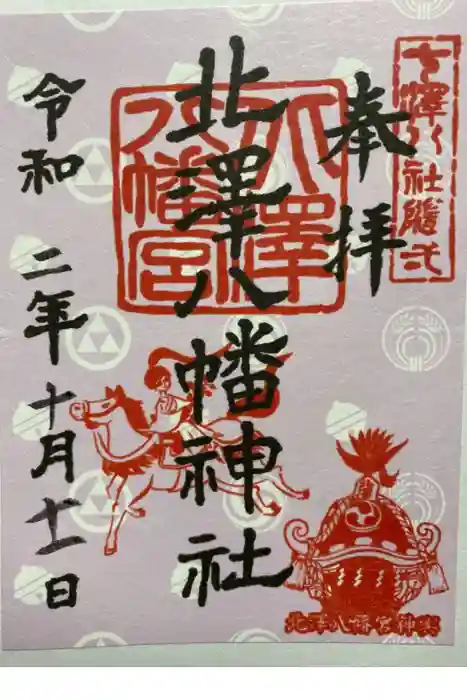 七澤八社随弌
奉拝
北澤八幡神社
北澤八幡宮
令和二年十月十一日
北澤八幡宮神輿